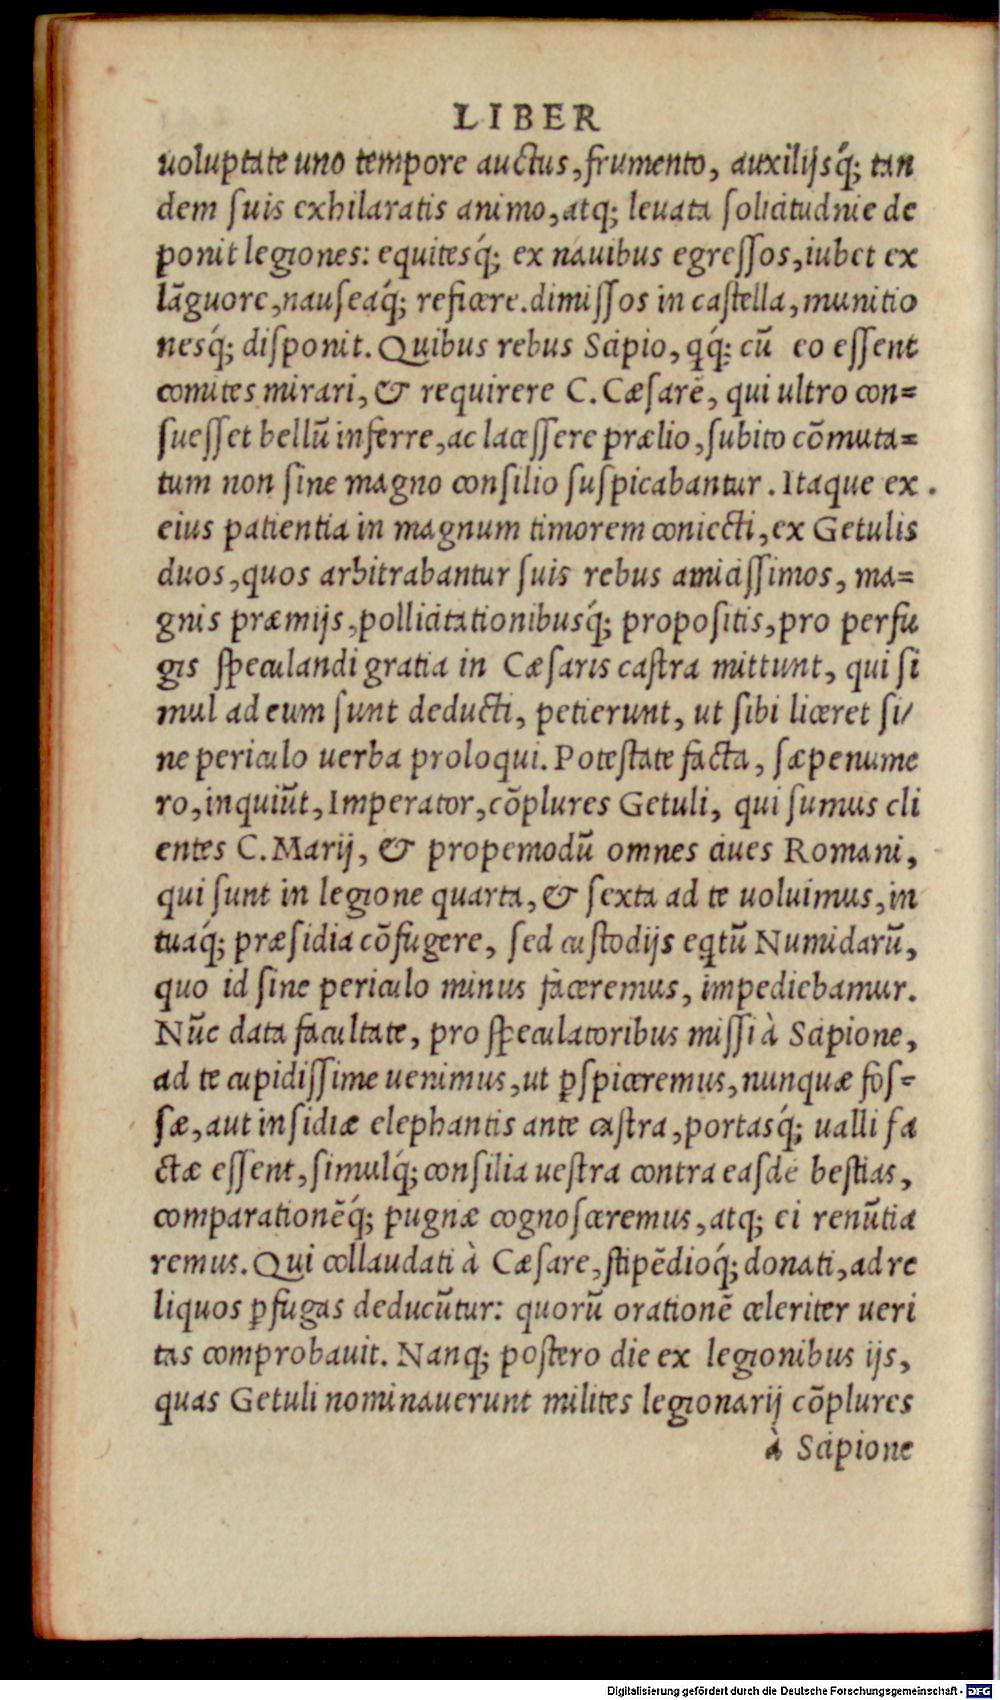 LIBER
uoluptate uno tempore auctus, frumento, auxilijsq́; tan
dem suis exhilaratis animo, atq; leuata solicitudnie de
ponit legiones: equitesq́; ex nauibus egressos, iubet ex
lãguore, nauseaq́; reficere. dimissos in castella, munitio
nesq́; disponit. Quibus rebus Scipio, qq́; cũ eo essent
comites mirari, & requirere C. Cæsarẽ, qui ultro con=
suesset bellũ inferre, ac lacessere prælio, subito cõmuta=
tum non sine magno consilio suspicabantur. Itaque ex.
eius patientia in magnum timorem coniecti, ex Getulis
duos, quos arbitrabantur suis rebus amicissimos, ma=
gnis præmijs, pollicitationibusq́; propositis, pro perfu
gis speculandi gratia in Cæsaris castra mittunt, qui si
mul ad eum sunt deducti, petierunt, ut sibi liceret si/
ne periculo uerba proloqui. Potestate facta, sæpenume
ro, inquiũt, Imperator, cõplures Getuli, qui sumus cli
entes C. Marij, & propemodũ omnes ciues Romani,
qui sunt in legione quarta, & sexta ad te uoluimus, in
tuaq́; præsidia cõfugere, sed custodijs eqtũ Numidarũ,
quo id sine periculo minus faceremus, impediebamur.
Nũc data facultate, pro speculatoribus missi à Scipione,
ad te cupidissime uenimus, ut ꝑspiceremus, nunquæ fos=
sæ, aut insidiæ elephantis ante castra, portasq́; ualli fa
ctæ essent, simulq́; consilia uestra contra easdẽ bestias,
comparationẽq́; pugnæ cognosceremus, atq; ei renũtia
remus. Qui collaudati à Cæsare, stipẽdioq́; donati, ad re
liquos ꝑfugas deducũtur: quorũ orationẽ celeriter ueri
tas comprobauit. Nanq; postero die ex legionibus ijs,
quas Getuli nominauerunt milites legionarij cõplures
à Scipione
Digitalisierung gefördert durch die Deutsche Forschungsgemeinschaft - DFG